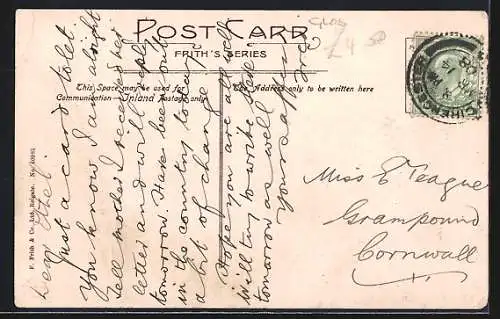 POST CARD
FRITH'S SERIES
GLOS
£4.50
This Space may be used for
Communication—Inland Postage only
The Address only to be written here
CIRENCESTER
F. Frith & Co., Ltd., Reigate. No.
Dear Ethel
Just a card to let
you know I am alright
Tell mother I received her
letter and will reply
tomorrow. Have been out
in the country today
a bit of change
Hope you are all well
Will try to write here
tomorrow as well
yours affec
Fred
Miss E Teague
Grampound
Cornwall